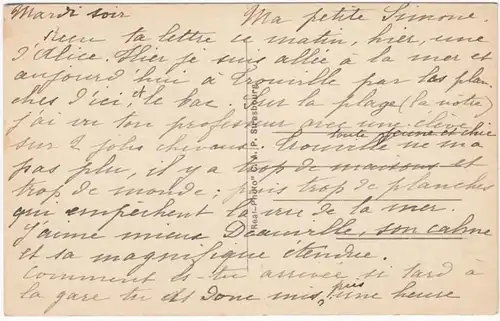 Mardi soir
Ma petite Simone.
Reçu ta lettre ce matin, hier, une
d'Alice. Hier je suis allée à la mer et
aujourd'hui à Trouville par les plan-
ches d'ici, et le bac. Sur la plage (la notre)
j'ai vu ton professeur avec une élève
toute jeune et chic
sur 2 jolis chevaux. Trouville ne m'a
pas plu, il y a trop de maisons et
trop de monde; puis trop de planches
qui empêchent la vue de la mer.
J'aime mieux Deauville, son calme
et sa magnifique étendue.
Comment es-tu arrivée si tard à
la gare tu as donc mis, puis une heure
"Real-Photo" C. A. P. Strasbourg